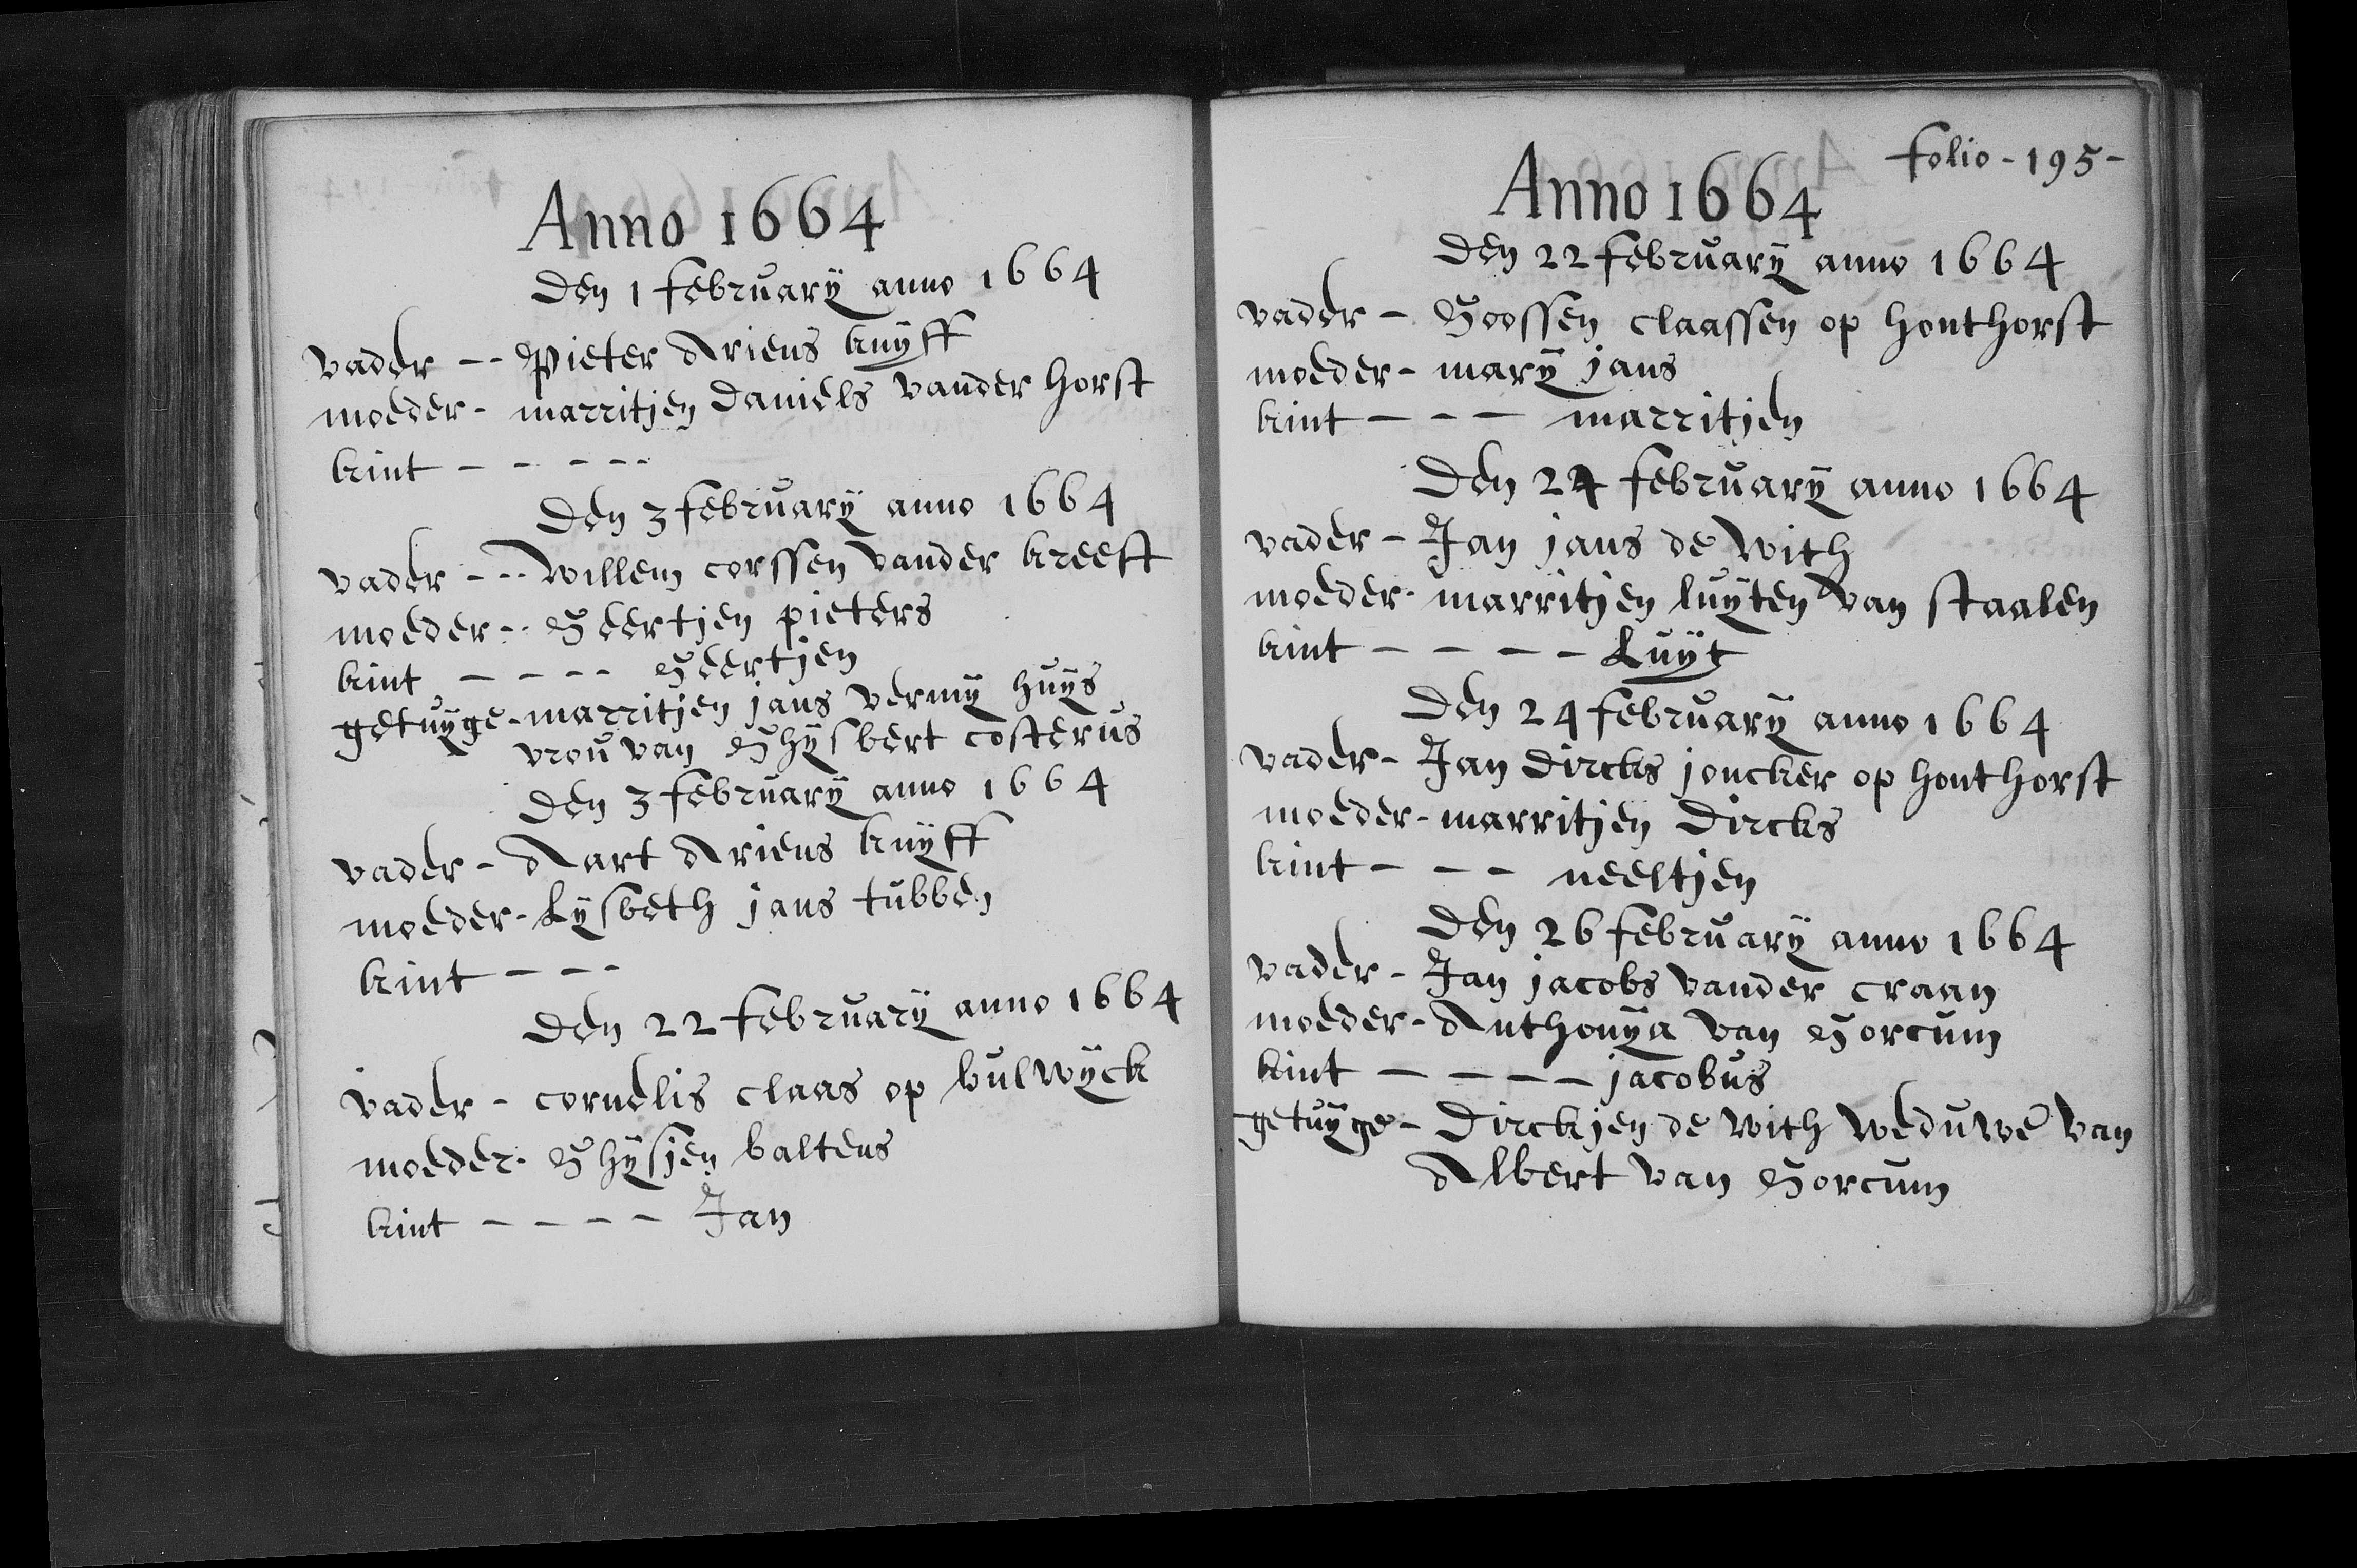 Anno 1664
Den 1 februarÿ anno 1664
vader -- Pieter Ariens kuÿff
moeder - marritjen Daniels vander horst
kint - - - - -
Den 3 februarÿ anno 1664
vader --- Willem corssen vander kreeft
moeder -- Geertjen pieters
kint - - - - Geertjen
getuÿge - marritjen jans vermÿ huÿs
vrou van Ghÿsbert costerus
Den 3 februarÿ anno 1664
vader - Aart Ariens kuÿff
moeder - Lÿsbeth jans tubben
kint - - -
Den 22 februarÿ anno 1664
vader - cornelis claas op bulwÿck
moeder - Ghÿsjen baltens
kint - - - - Jan
folio - 195 -
Anno 1664
Den 22 februarÿ anno 1664
vader - Goossen claassen op honthorst
moeder - marÿ jans
kint - - - marritjen
Den 24 februarÿ anno 1664
vader - Jan jans de With
moeder - marritjen luÿten van staalen
kint - - - - Luÿt
Den 24 februarÿ anno 1664
vader - Jan Dircks joncker op honthorst
moeder - marritjen Dircks
kint - - - neeltjen
Den 26 februarÿ anno 1664
vader - Jan jacobs vander craan
moeder - Anthonÿa van Gorcum
kint - - - - jacobus
getuÿge - Dirckjen de With weduwe van
Albert van Gorcum